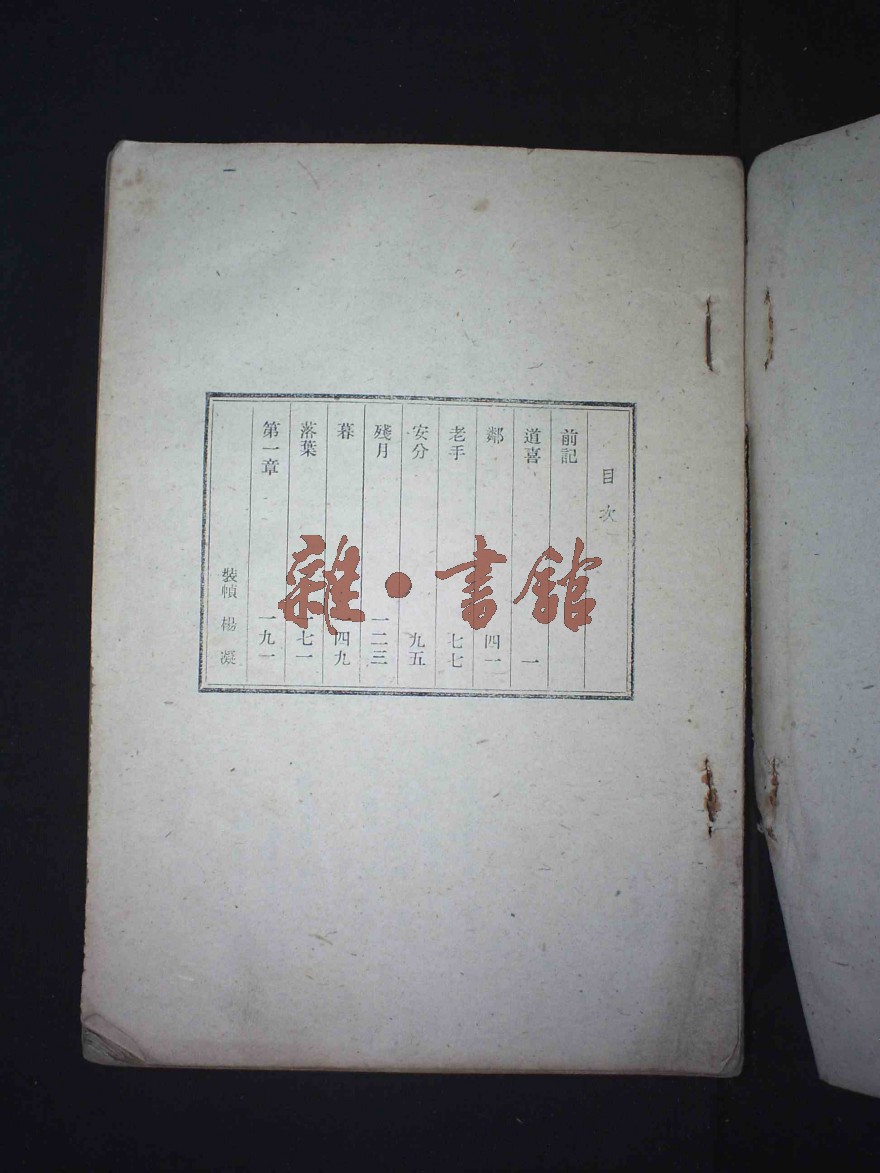 目次
前記
道喜 一
鄰 四一
老手 七七
安分 九五
殘月 一二三
暮 四九
落葉 七一
第一章 一九一
裝幀 楊凝
雜·書館